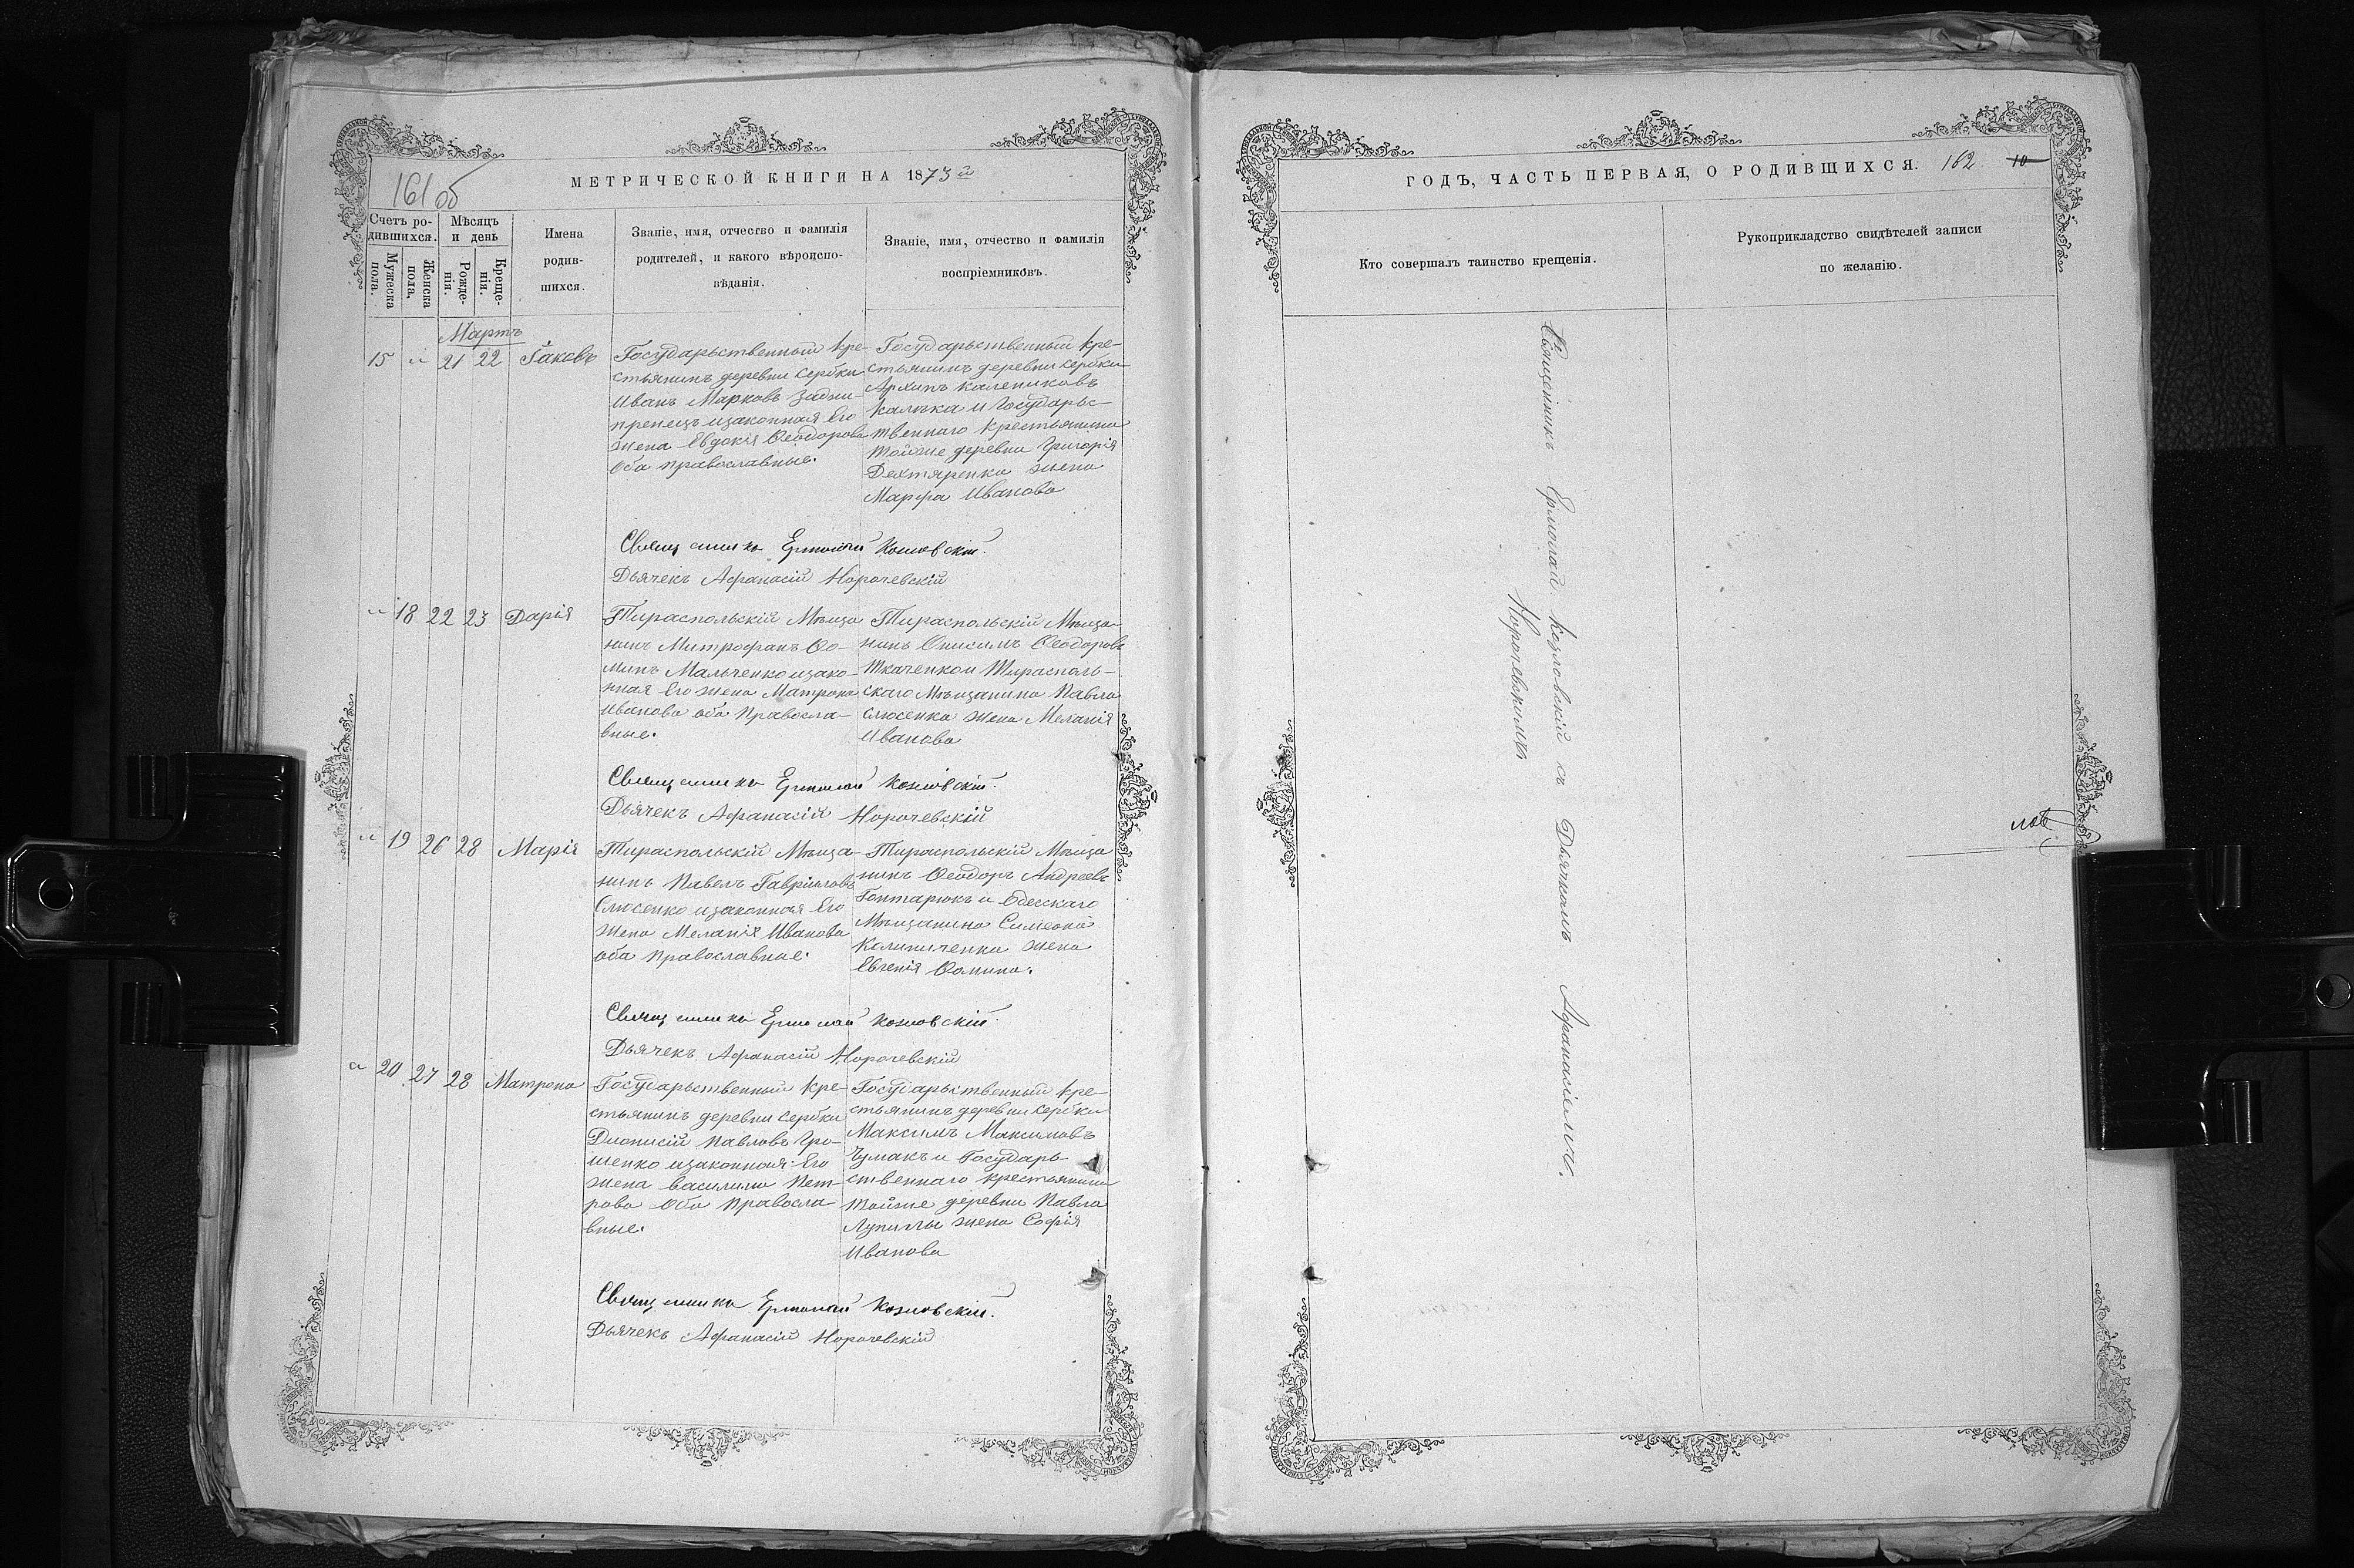 161 об
МЕТРИЧЕСКОЙ КНИГИ НА 1873 й
Счетъ ро-
дившихся.
Мужеска
пола.
Женска
пола.
Мѣсяцъ
и день
Рожде-
нія.
Креще-
нія.
Имена
родив-
шихся.
Званіе, имя, отчество и фамилія
родителей, и какого вѣроиспо-
вѣданія.
Званіе, имя, отчество и фамилія
воспріемниковъ.
Мартъ
15 " 21 22 Іаковъ
Государьственный кре-
стьянинъ деревни Сербки
Иванъ Марковъ Задни-
пренецъ изаконная Его
жена Евдокія Ѳеодорова
Оба православные.
Государьственный кре-
стьянинъ деревни Сербки
Архипъ Калениковъ
и Государьс-
твеннаго крестьянина
тойже деревни Григорія
Дехтяренка жена
Марфа Иванова
Священникъ Ермолай Козловскій.
Дьячекъ Афанасій Норочевскій
" 18 22 23 Дарія
Тираспольскій Мѣща
нинъ Митрофанъ Ѳо-
минъ Мальченко изако-
нная Его жена Матрона
Иванова оба Правосла-
вные.
Тираспольскій Мѣща-
нинъ Онисимъ Ѳеодоровъ
Ткаченко и Тирасполь-
скаго Мѣщанина Павла
Слюсенка жена Меланія
Иванова
Священникъ Ермолай Козловскій.
Дьячекъ Афанасій Норочевскій
" 19 26 28 Марія
Тираспольскій Мѣща-
нинъ Павелъ Гавріиловъ
Слюсенко изаконная Его
жена Меланія Иванова
оба Православные.
Тираспольскій Мѣща
нинъ Ѳеодоръ Андреевъ
Гонтарюкъ и Одесскаго
Мѣщанина Симеона
Калиниченка жена
Евгенія Ѳомина.
Священникъ Ермолай Козловскій.
Дьячекъ Афанасій Норочевскій
" 20 27 28 Матрона
Государьственный кре-
стьянинъ деревни Сербки
Дионисій Павловъ Гро-
шенко изаконная Его
жена Василиса Пет-
рова Оба Правосла-
вные.
Государьственный кре-
стьянинъ деревни Сербки
Максимъ Максимовъ
Чумакъ и Государь-
ственнаго крестьянина
тойже деревни Павла
Лупилы жена Софія
Иванова
Священникъ Ермолай Козловскій.
Дьячекъ Афанасій Норочевскій
ГОДЪ, ЧАСТЬ ПЕРВАЯ, О РОДИВШИХСЯ. 162 10
Кто совершалъ таинство крещенія.
Рукоприкладство свидѣтелей записи
по желанію.
Священникъ Ермолай Козловскій съ Дьячкомъ Афанасіемъ.
Норочевскимъ